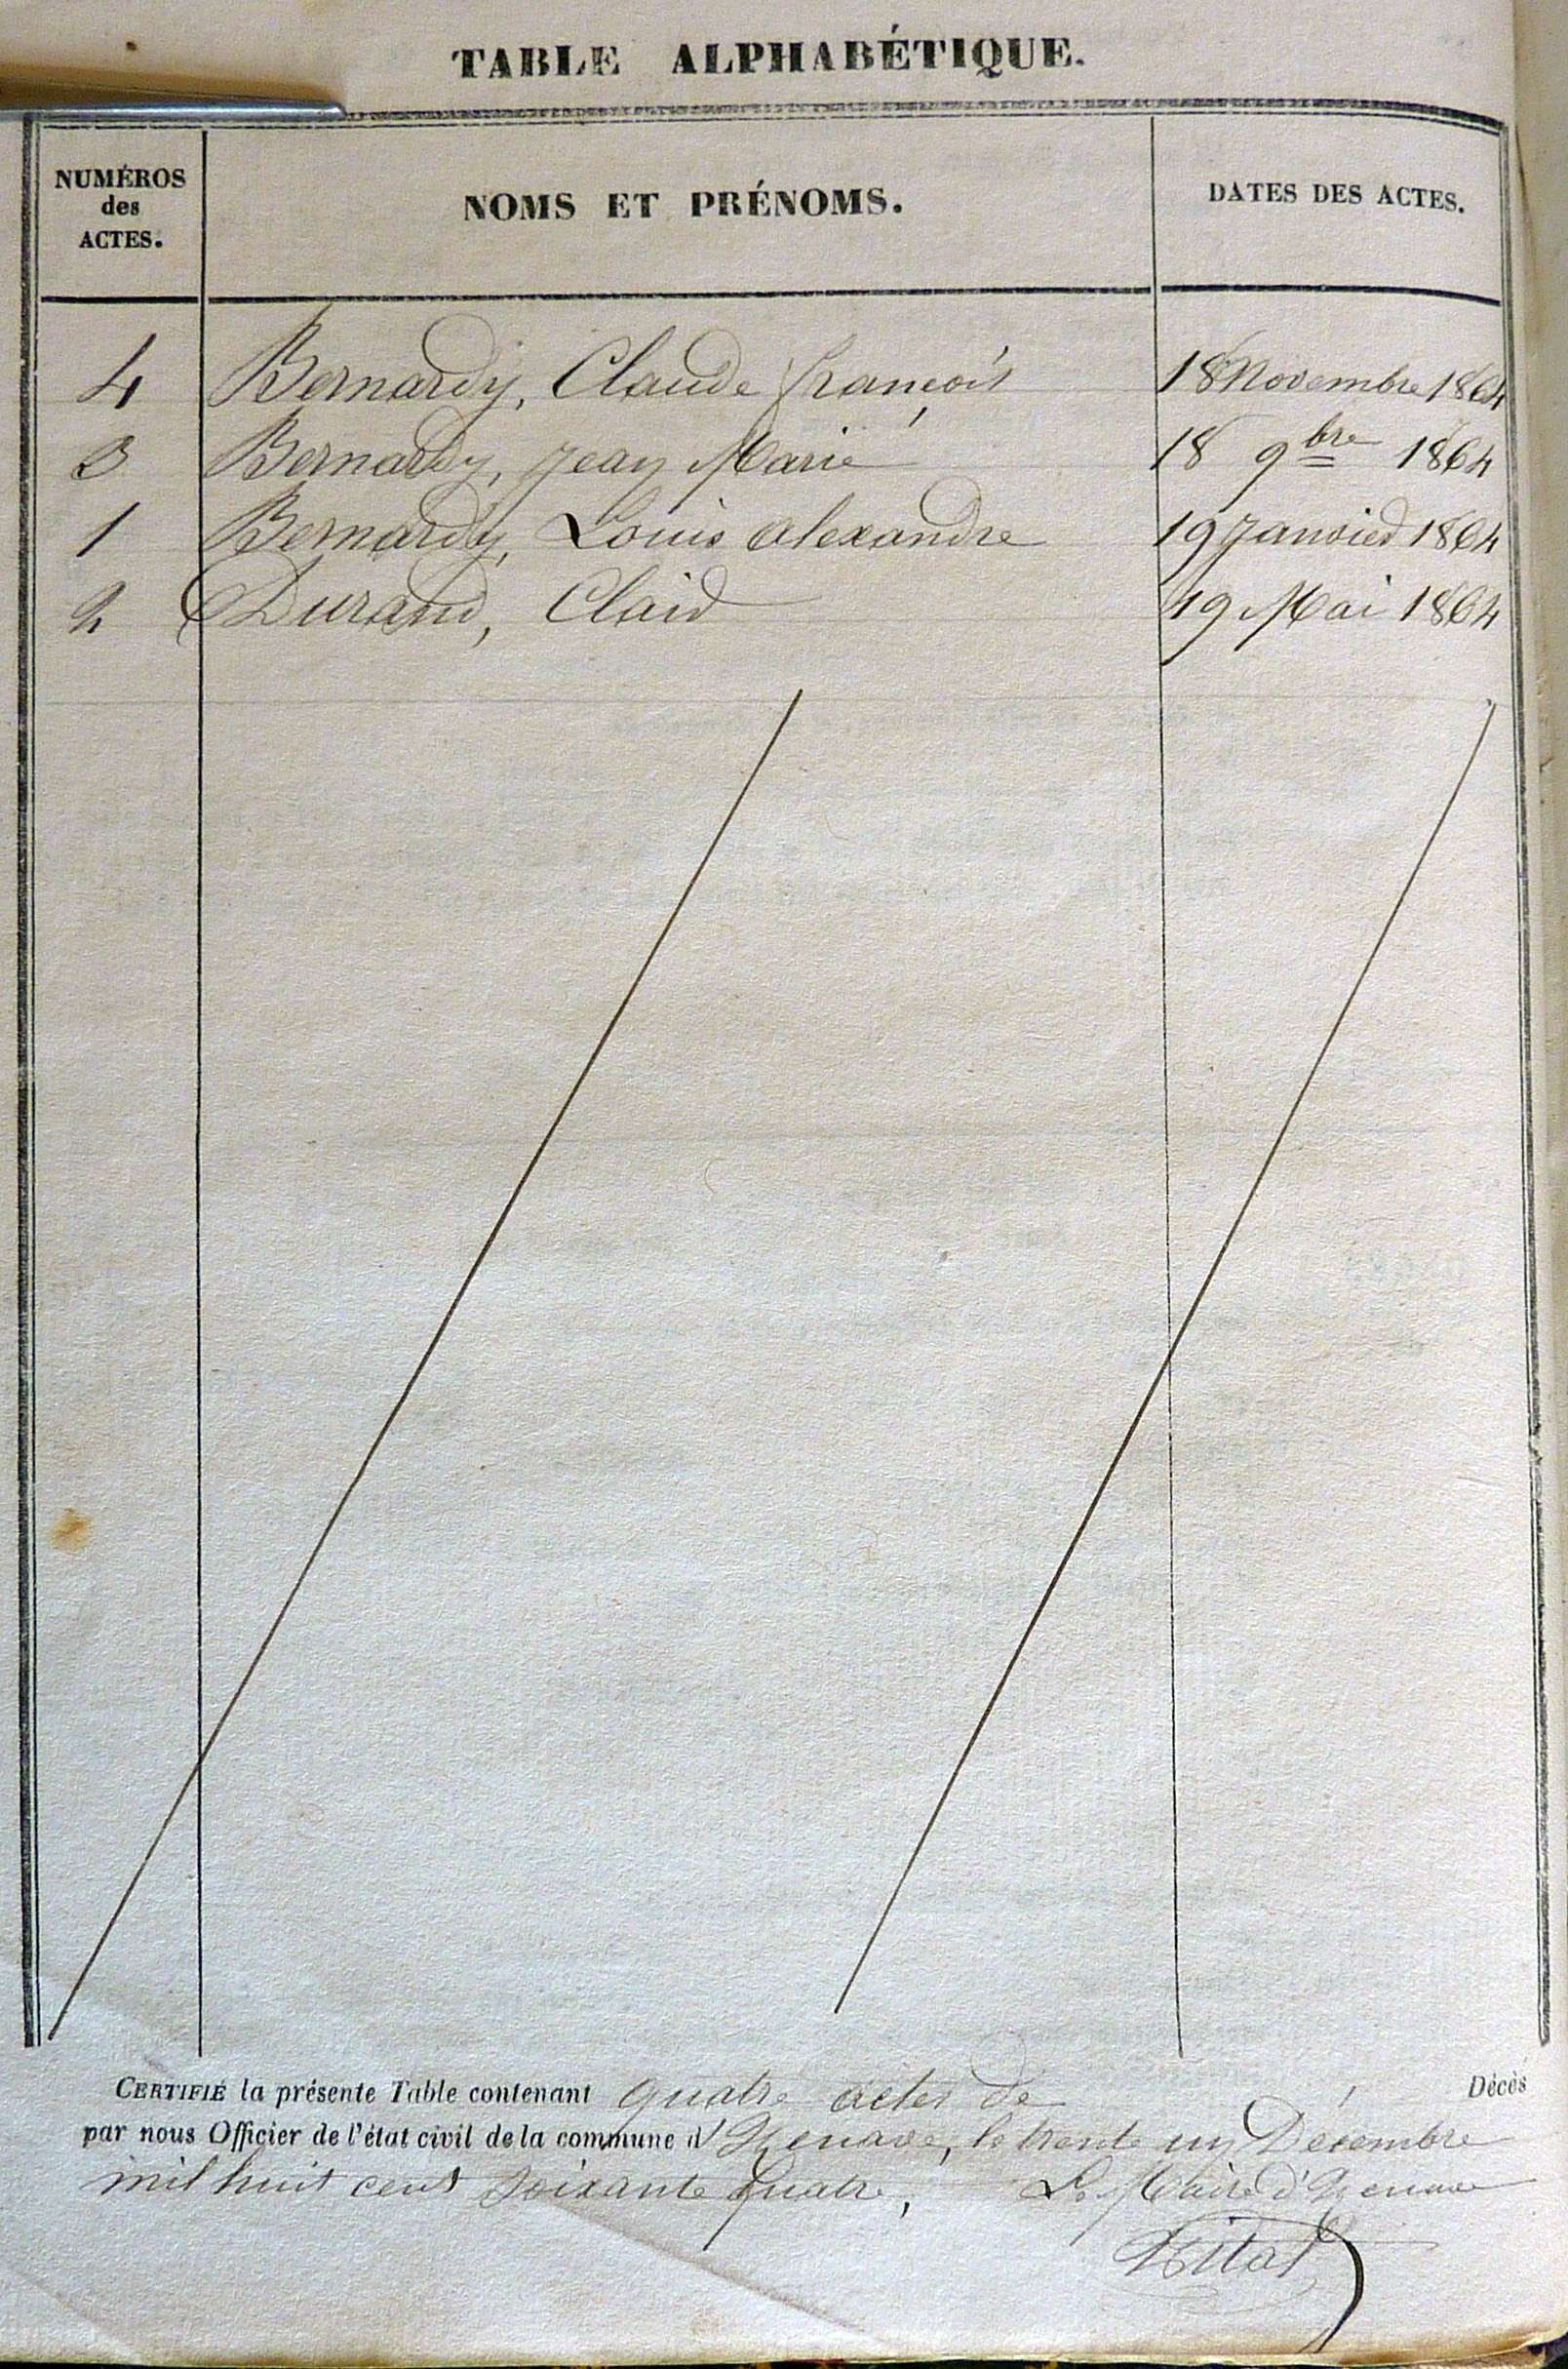 TABLE ALPHABÉTIQUE.
NUMÉROS
des
ACTES.
NOMS ET PRÉNOMS.
DATES DES ACTES.
4 Bernardy, Claude françois 18 Novembre 1864
3 Bernardy, Jean Marie 18 9bre 1864
1 Bernardy, Louis alexandre 19 Janvier 1864
2 Durand, Clair 19 Mai 1864
CERTIFIÉ la présente Table contenant quatre actes de Décès
par nous Officier de l'état civil de la commune d' le trente un Décembre
mil huit cent soixante quatre, Le Maire
Vital